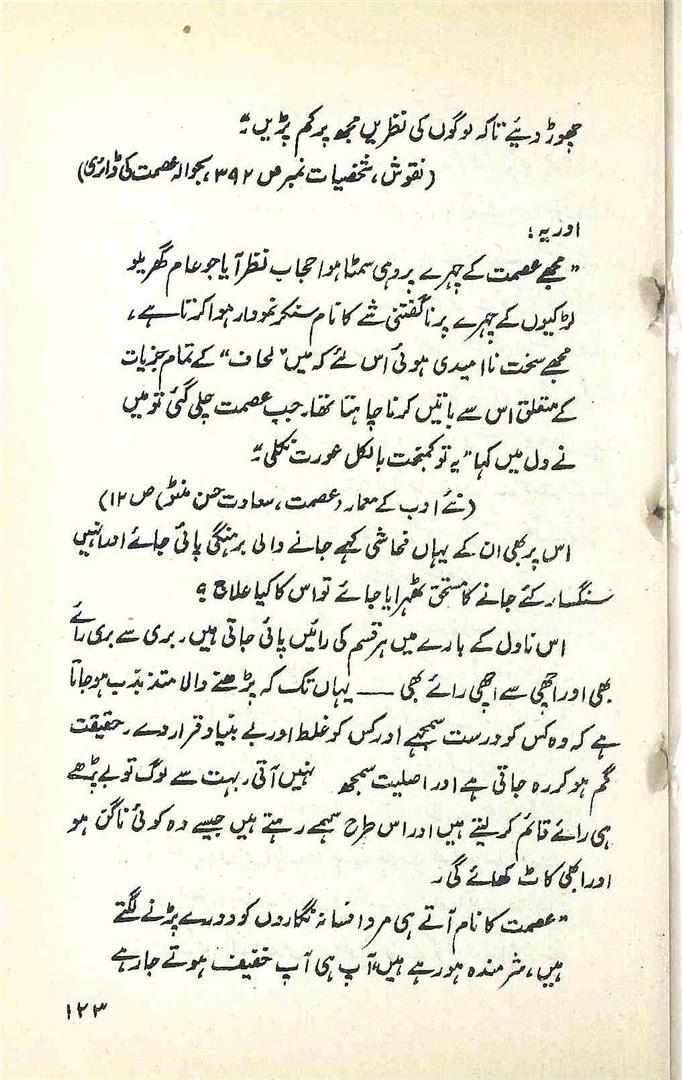 چھوڑ دیئے تاکہ لوگوں کی نظریں مجھ پر کم پڑیں۔"
(نقوش، شخصیات نمبر ص ۳۹۲، بحوالہ عصمت کی ڈائری)
اور یہ:
"مجھے عصمت کے چہرے پر وہی سمٹا ہوا حجاب نظر آیا جو عام گھریلو
لڑکیوں کے چہرے پر ناگفتنی شے کا نام سنکر نمودار ہوا کرتا ہے،
مجھے سخت ناامیدی ہوئی اس لئے کہ میں "لحاف" کے تمام جزیات
کے متعلق اس سے باتیں کرنا چاہتا تھا۔ جب عصمت چلی گئی تو میں
نے دل میں کہا "یہ تو کمبخت بالکل عورت نکلی۔"
(نئے ادب کے معمار (عصمت، سعادت حسن منٹو) ص ۱۲)
اس پر بھی ان کے یہاں فحاشی کہے جانے والی برہنگی پائی جائے اور انہیں
سنگسار کئے جانے کا مستحق ٹھہرایا جائے تو اس کا کیا علاج؟
اس ناول کے بارے میں ہر قسم کی رائیں پائی جاتی ہیں۔ بری سے بری رائے
بھی اور اچھی سے اچھی رائے بھی —— یہاں تک کہ پڑھنے والا متذبذب ہوجاتا
ہے کہ وہ کس کو درست سمجھے اور کس کو غلط اور بے بنیاد قرار دے۔ حقیقت
گم ہو کر رہ جاتی ہے اور اصلیت سمجھ نہیں آتی۔ بہت سے لوگ تو بے پڑھے
ہی رائے قائم کر لیتے ہیں اور اس طرح سہمے رہتے ہیں جیسے وہ کوئی ناگن ہو
اور ابھی کاٹ کھائے گی۔
"عصمت کا نام آتے ہی مرد افسانہ نگاروں کو دورے پڑنے لگتے
ہیں، شرمندہ ہو رہے ہیں، آپ ہی آپ خفیف ہوتے جا رہے
۱۲۳